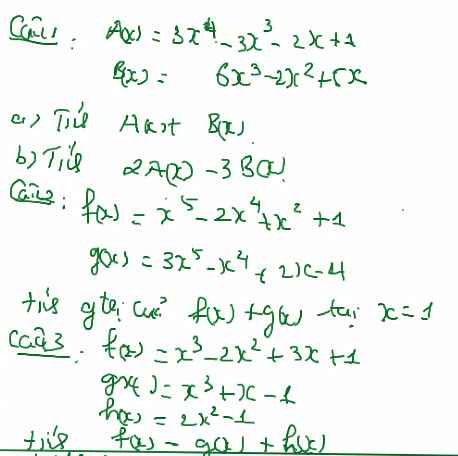 Câu1: A(x) = 3x⁴ - 3x³ - 2x + 1
B(x) = 6x³ - 2x² + 5x
a) Tính A(x) + B(x).
b) Tính 2A(x) - 3B(x).
Câu2: f(x) = x⁵ - 2x⁴ + x² + 1
g(x) = 3x⁵ - x⁴ + 2x - 4
tính gtrị của f(x) + g(x) tại x = 1
Câu3: f(x) = x³ - 2x² + 3x + 1
g(x) = x³ + x - 1
h(x) = 2x² - 1
tính f(x) - g(x) + h(x)